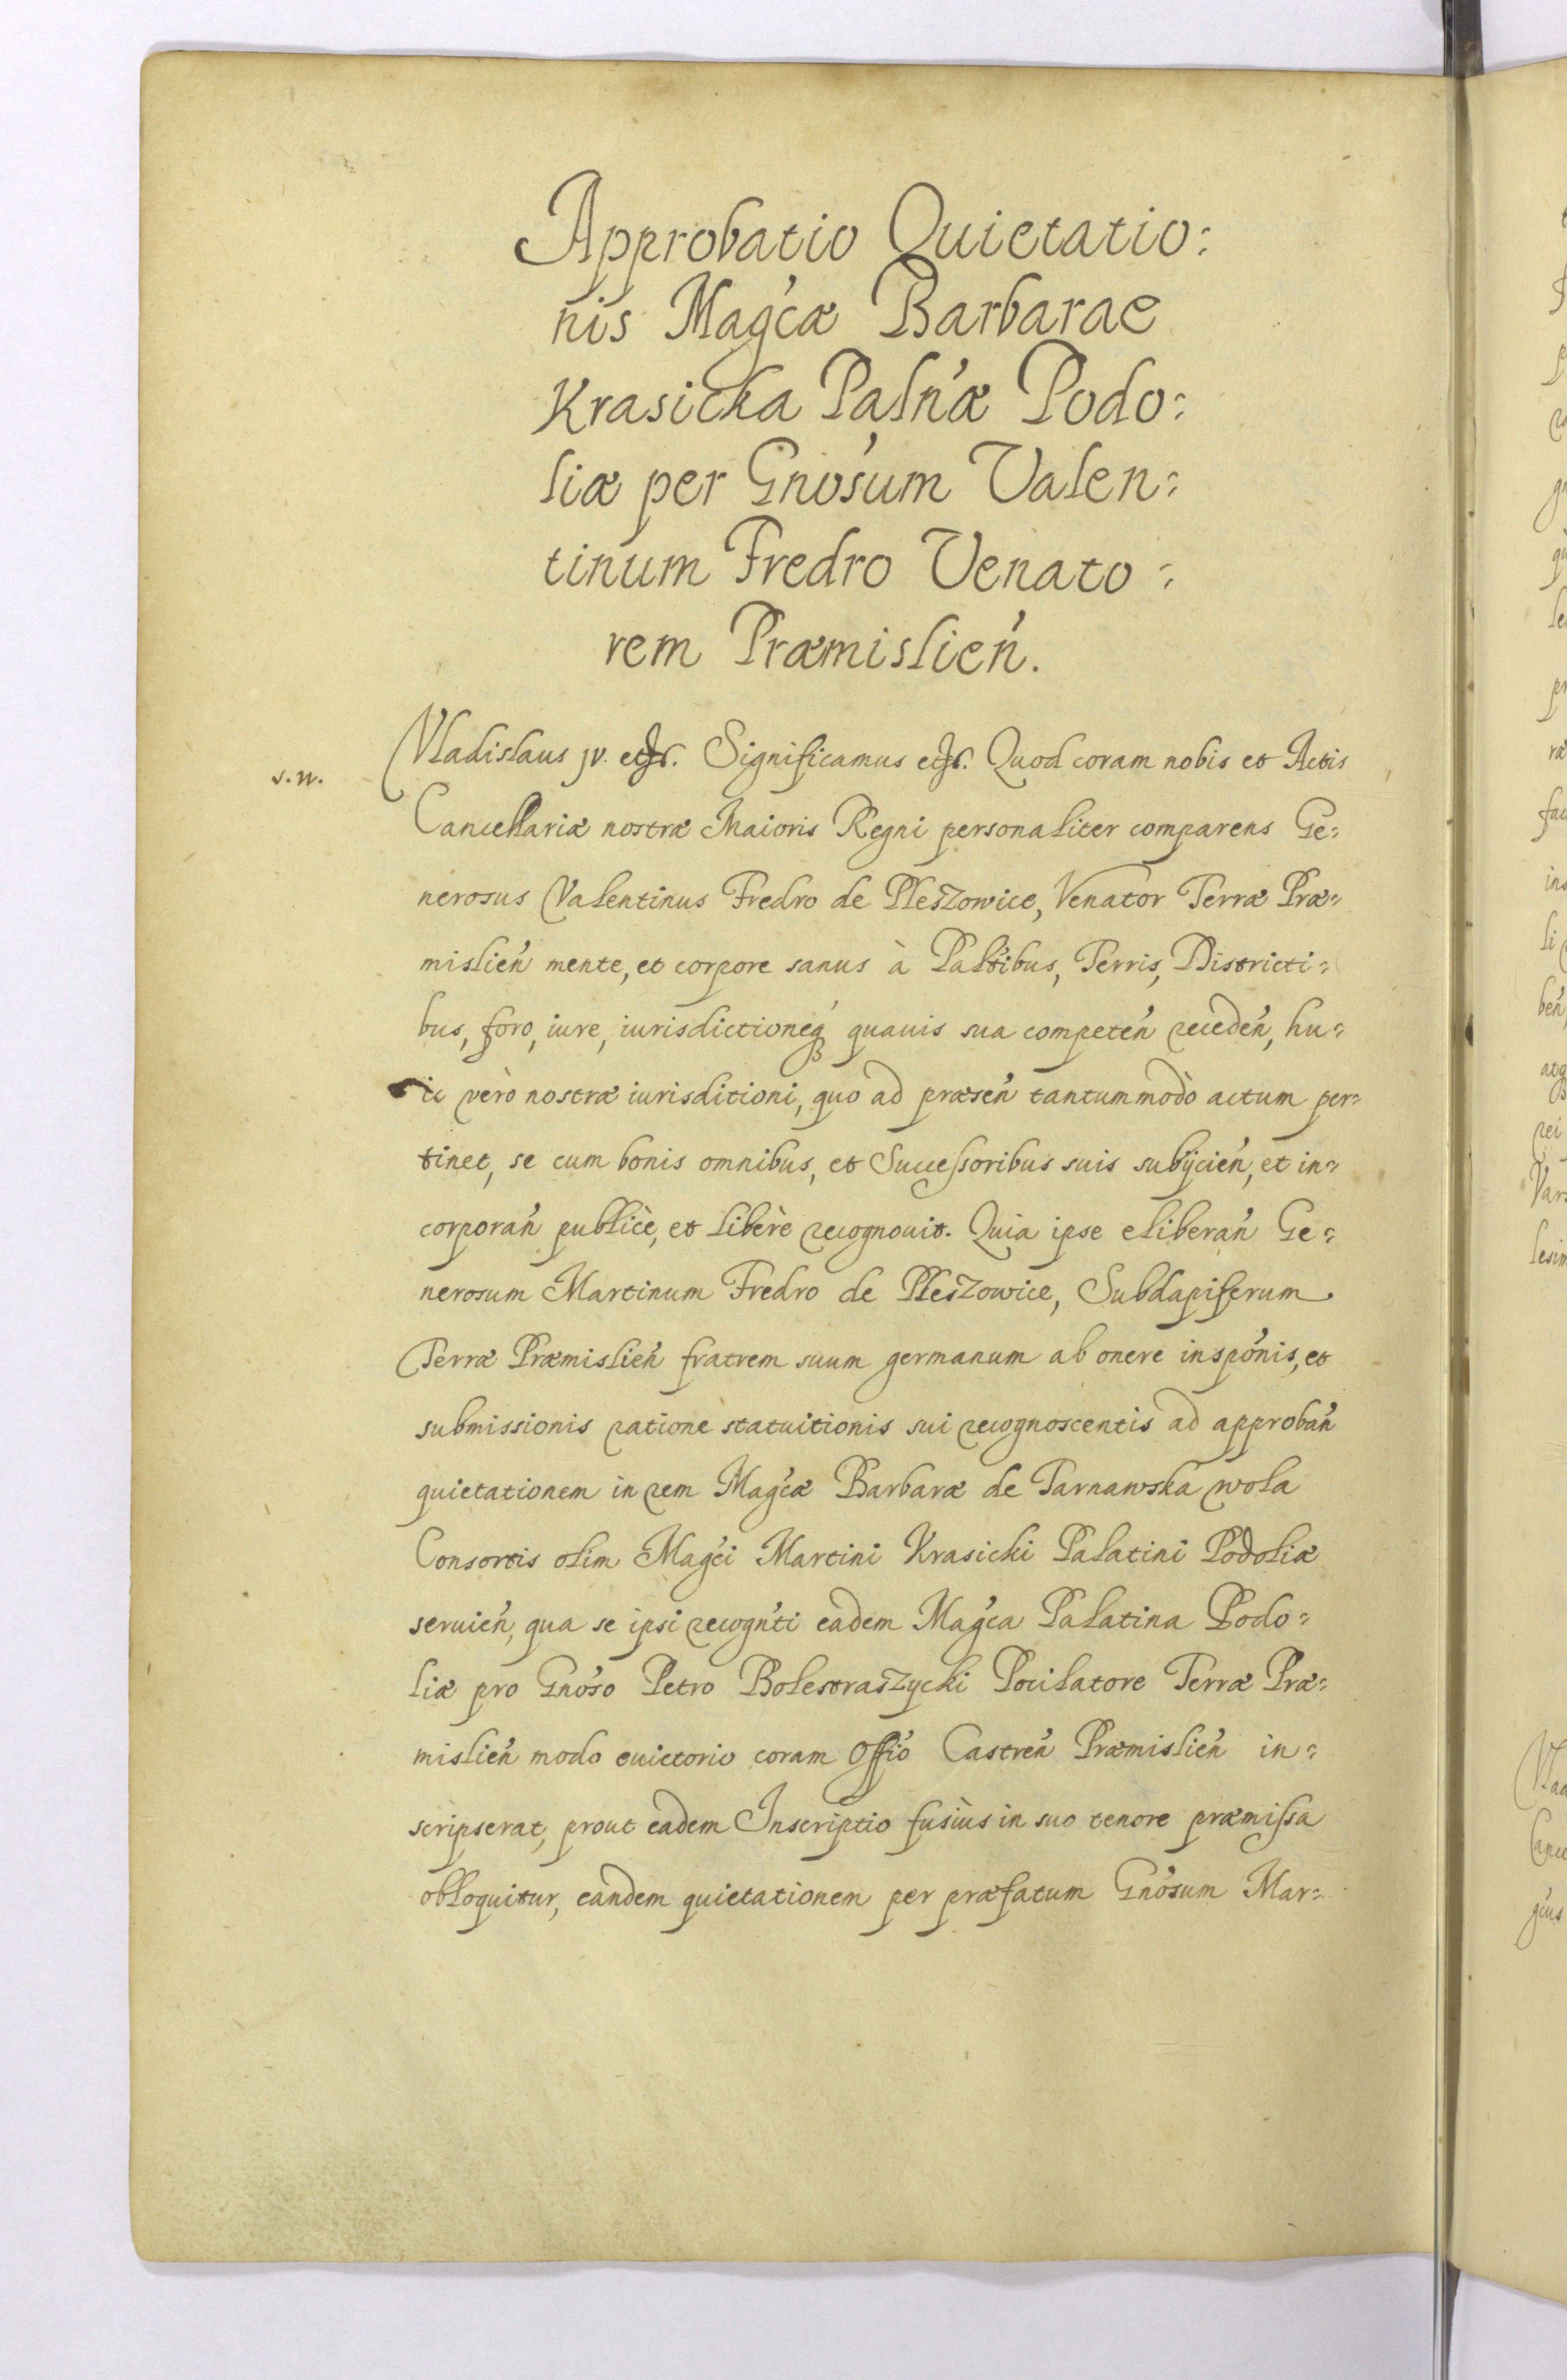 Approbatio Quietatio:
nis Mag'cæ Barbarae
Krasicka Paln'æ Podo:
liæ per Gno'sum Valen:
tinum Fredro Venato:
rem Præmislien'.
s. n.
Vladislaus jv. etc. Significamus etc. Quod coram nobis et Actis
Cancellariæ nostræ Maioris Regni personaliter comparens Ge:
nerosus Valentinus Fredro de Pleszowice, Venator Terræ Præ:
mislien' mente, et corpore sanus à Pal'tibus, Terris, Districti:
bus, foro, iure, iurisdictioneq' quauis sua competen' receden', hu:
ic verò nostræ iurisditioni, quo ad præsen' tantummodò actum per:
tinet, se cum bonis omnibus, et Successoribus suis subijcien', et in:
corporan' publicè, et liberè recognouit. Quia ipse eliberan' Ge:
nerosum Martinum Fredro de Pleszowice, Subdapiferum
Terræ Præmislien' fratrem suum germanum ab onere inspo'nis, et
submissionis ratione statuitionis sui recognoscentis ad approban'
quietationem in rem Mag'cæ Barbaræ de Tarnawska wola
Consortis olim Mag'ci Martini Krasicki Palatini Podoliæ
seruien', qua se ipsi recogn'ti eadem Mag'ca Palatina Podo:
liæ pro Gno'so Petro Bolestraszycki Pocilatore Terræ Præ:
mislien' modo euictorio coram Offi'o Castren' Præmislien' in:
scripserat, prout eadem Inscriptio fusiùs in suo tenore præmissa
obloquitur, eandem quietationem per præfatum Gno'sum Mar: